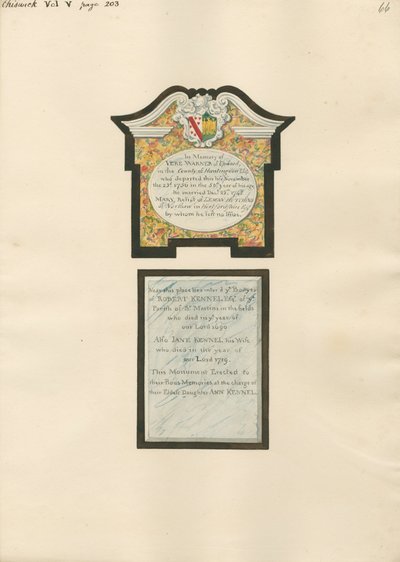 Chiswick Vol V page 203
66
In Memory of
VERE WARNER of
in the County of Huntingdon Esq
who departed this life November
the 23d 1756 in the year of his age
he married Decr
MARY, Relict of
of in Hertfordshire Esq
by whom he left no Issue.
Near this place lies interd ye Bodys
of ROBERT KENNEL Esqr of ye
Parish of St Martins in the fields
who died in ye year of
our Lord 1690
Also JANE KENNEL his Wife
who died in the year of
our Lord 1719.
This Monument Erected to
their Pious Memories at the charge of
their Eldest Daughter ANN KENNEL.